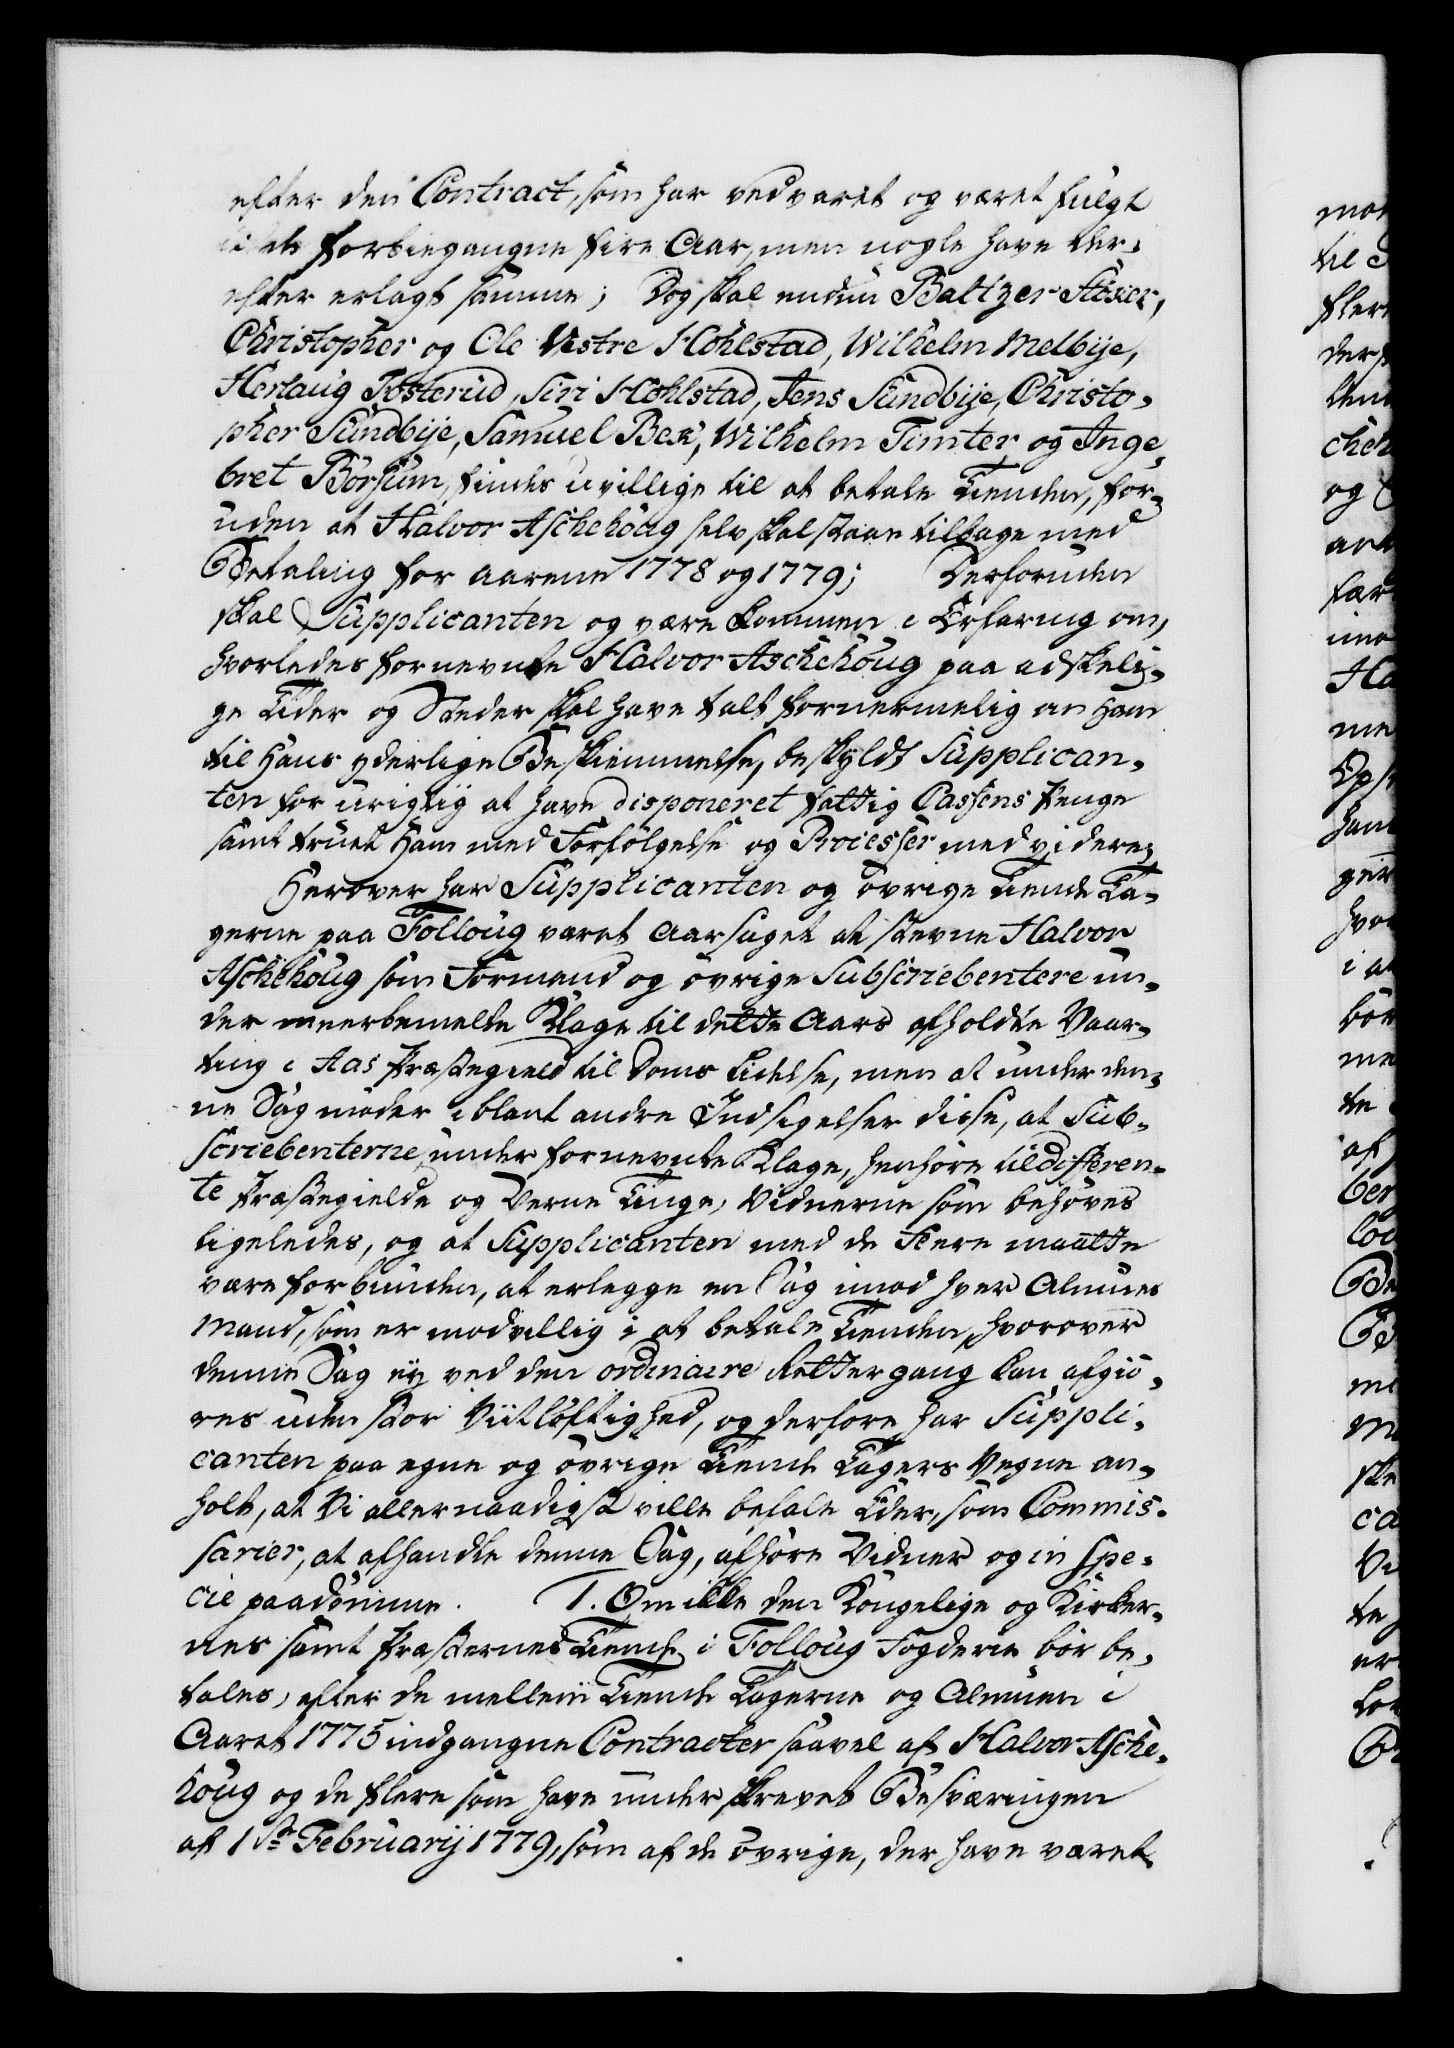 efter den Contract, som har vedvaret og været fulgt
i de forbiegangne fire Aar, men nogle have der-
efter erlagt samme; Dog skal endnu Baltzer
Christopher og Ole Vestre Hohlstad, Wilhelm Melbije,
Herlaug Fosterud, Siri Hohlstad, Jens Sundbije, Christo-
pher Sundbije, Samuel Bek, Wilhelm Timter og Inge-
bret Borsum, findes uvillige til at betale Tienden, for-
uden at Halvor Aschehoug selv skal staae tilbage med
Betaling for Aarene 1778 og 1779; Desforuden
skal Supplicanten og være kommen i Erfaring om,
hvorledes fornevnte Halvor Aschehoug paa adskeli-
ge Tider og Steder skal have talt fornermelig om ham
til hans yderlige Beskiemmelse, beskyldt Supplican-
ten for urigtig at have disponeret fattig Cassens Penge
samt truet ham med Forfølgelse og Processer med videre;
Herover har Supplicanten og øvrige Tiende Ta-
gerne paa Folloug været aarsaget at stevne Halvor
Aschehoug som Formand og øvrige Subscriebentere un-
der meerbemelte Klage til dette Aars afholdte Vaar-
ting i Aas Præstegield til Doms Lidelse, men at under den-
ne Sag møder iblant andre Indsigelser disse, at Sub-
scriebenterne under fornevnte Klage, henhøre til differen-
te Præstegielde og Verne Tinge, Vidnerne som behøves
ligeledes, og at Supplicanten med de fleere maatte
være forbunden, at erlegge en Sag imod hver Almues
Mand, som er modvillig i at betale Tienden, hvorover
denne Sag ey ved den ordinaire Rettergang kan afgiø-
res uden stor Viitløftighed, og derfore har Suppli-
canten paa egne og øvrige Tiende Tagers Vegne an-
holt, at Vi allernaadigst ville befale Eder, som Commis-
sarier, at afhandle denne Sag, afhøre Vidner og in spe-
cie paadømme. 1. Om ikke den Kongelige og Kirker-
nes samt Præsternes Tiende i Folloug Fogderie bør be-
tales, efter de mellem Tiende Tagerne og Almuen i
Aaret 1775 indgangne Contracter saavel af Halvor Asche-
houg og de flere som have underskrevet Besværingen
af 1ste Februarij 1779, som af de øvrige, der have været